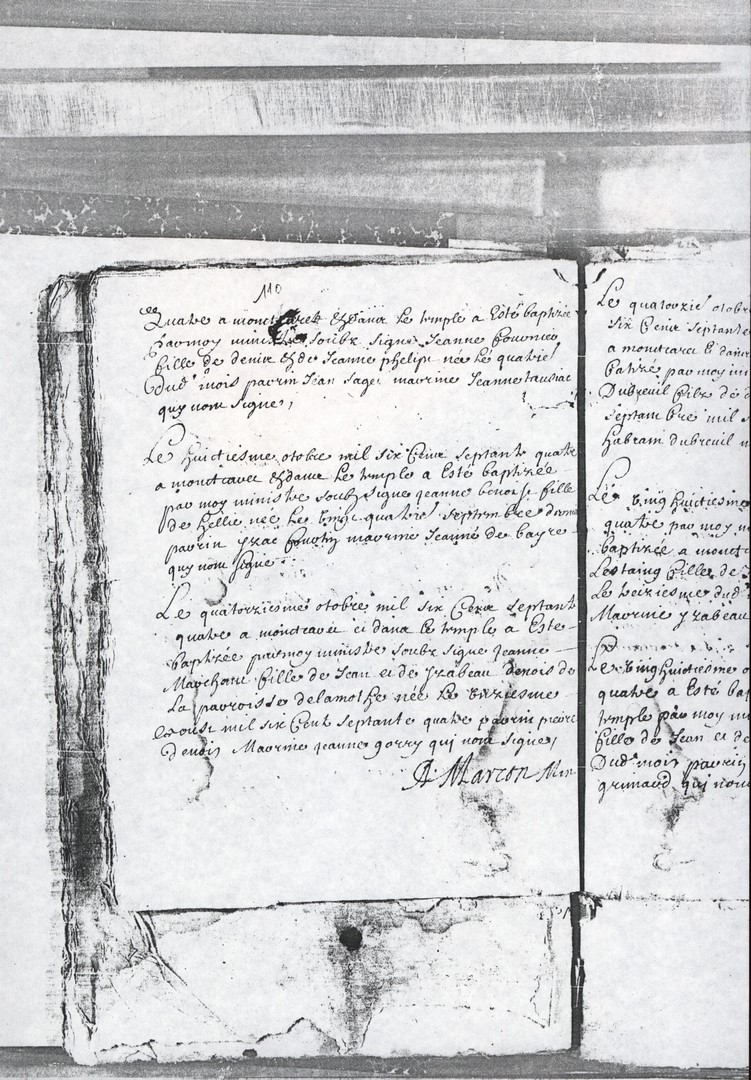 110
Quatre a montcaret & dans le temple a Esté baptizée
par moy ministre soubz signe Jeanne
fille de denis & de Jeanne phelip née le quatriesme
Dud' mois parrin Jean Sage marrine Jeanne
quy nont Signe,
Le huictiesme otobre mil six Cens septante quatre
a montcaret & dans le temple a Esté baptizée
par moy ministre soubz signe Jeanne benoist fille
de hellie née le Vingt quatries' septembre dernier
parrin yzac marrine Jeanne de bayre
quy nont signe
Le quatorziesme otobre mil six Cens septante
quatre a montcaret et dans le temple a Este
baptizée par moy ministre soubz signe Jeanne
Marchant fille de Jean et de yzabeau denois de
la parroisse delamothe née le treziesme
aoust mil six Cent septante quatre parrin pierre
denois Marrine Jeanne gorry qui nont signe,
A Marcon Min
Le quatorzies' otobre
six Cens septante
a montcaret et dans
batizé par moy mi
Dubreuil filz de
septambre mil s
habram dubreuil n
Le Vingt huictiesme
quatre par moy m
baptizée a montc
Lestaing fille de
le treiziesme dud'
Marrine yzabeau
Le Vingt huictiesme o
quatre a Esté bap
temple par moy mi
fille de Jean et de
Dud' mois parrin
grimaud qui nont